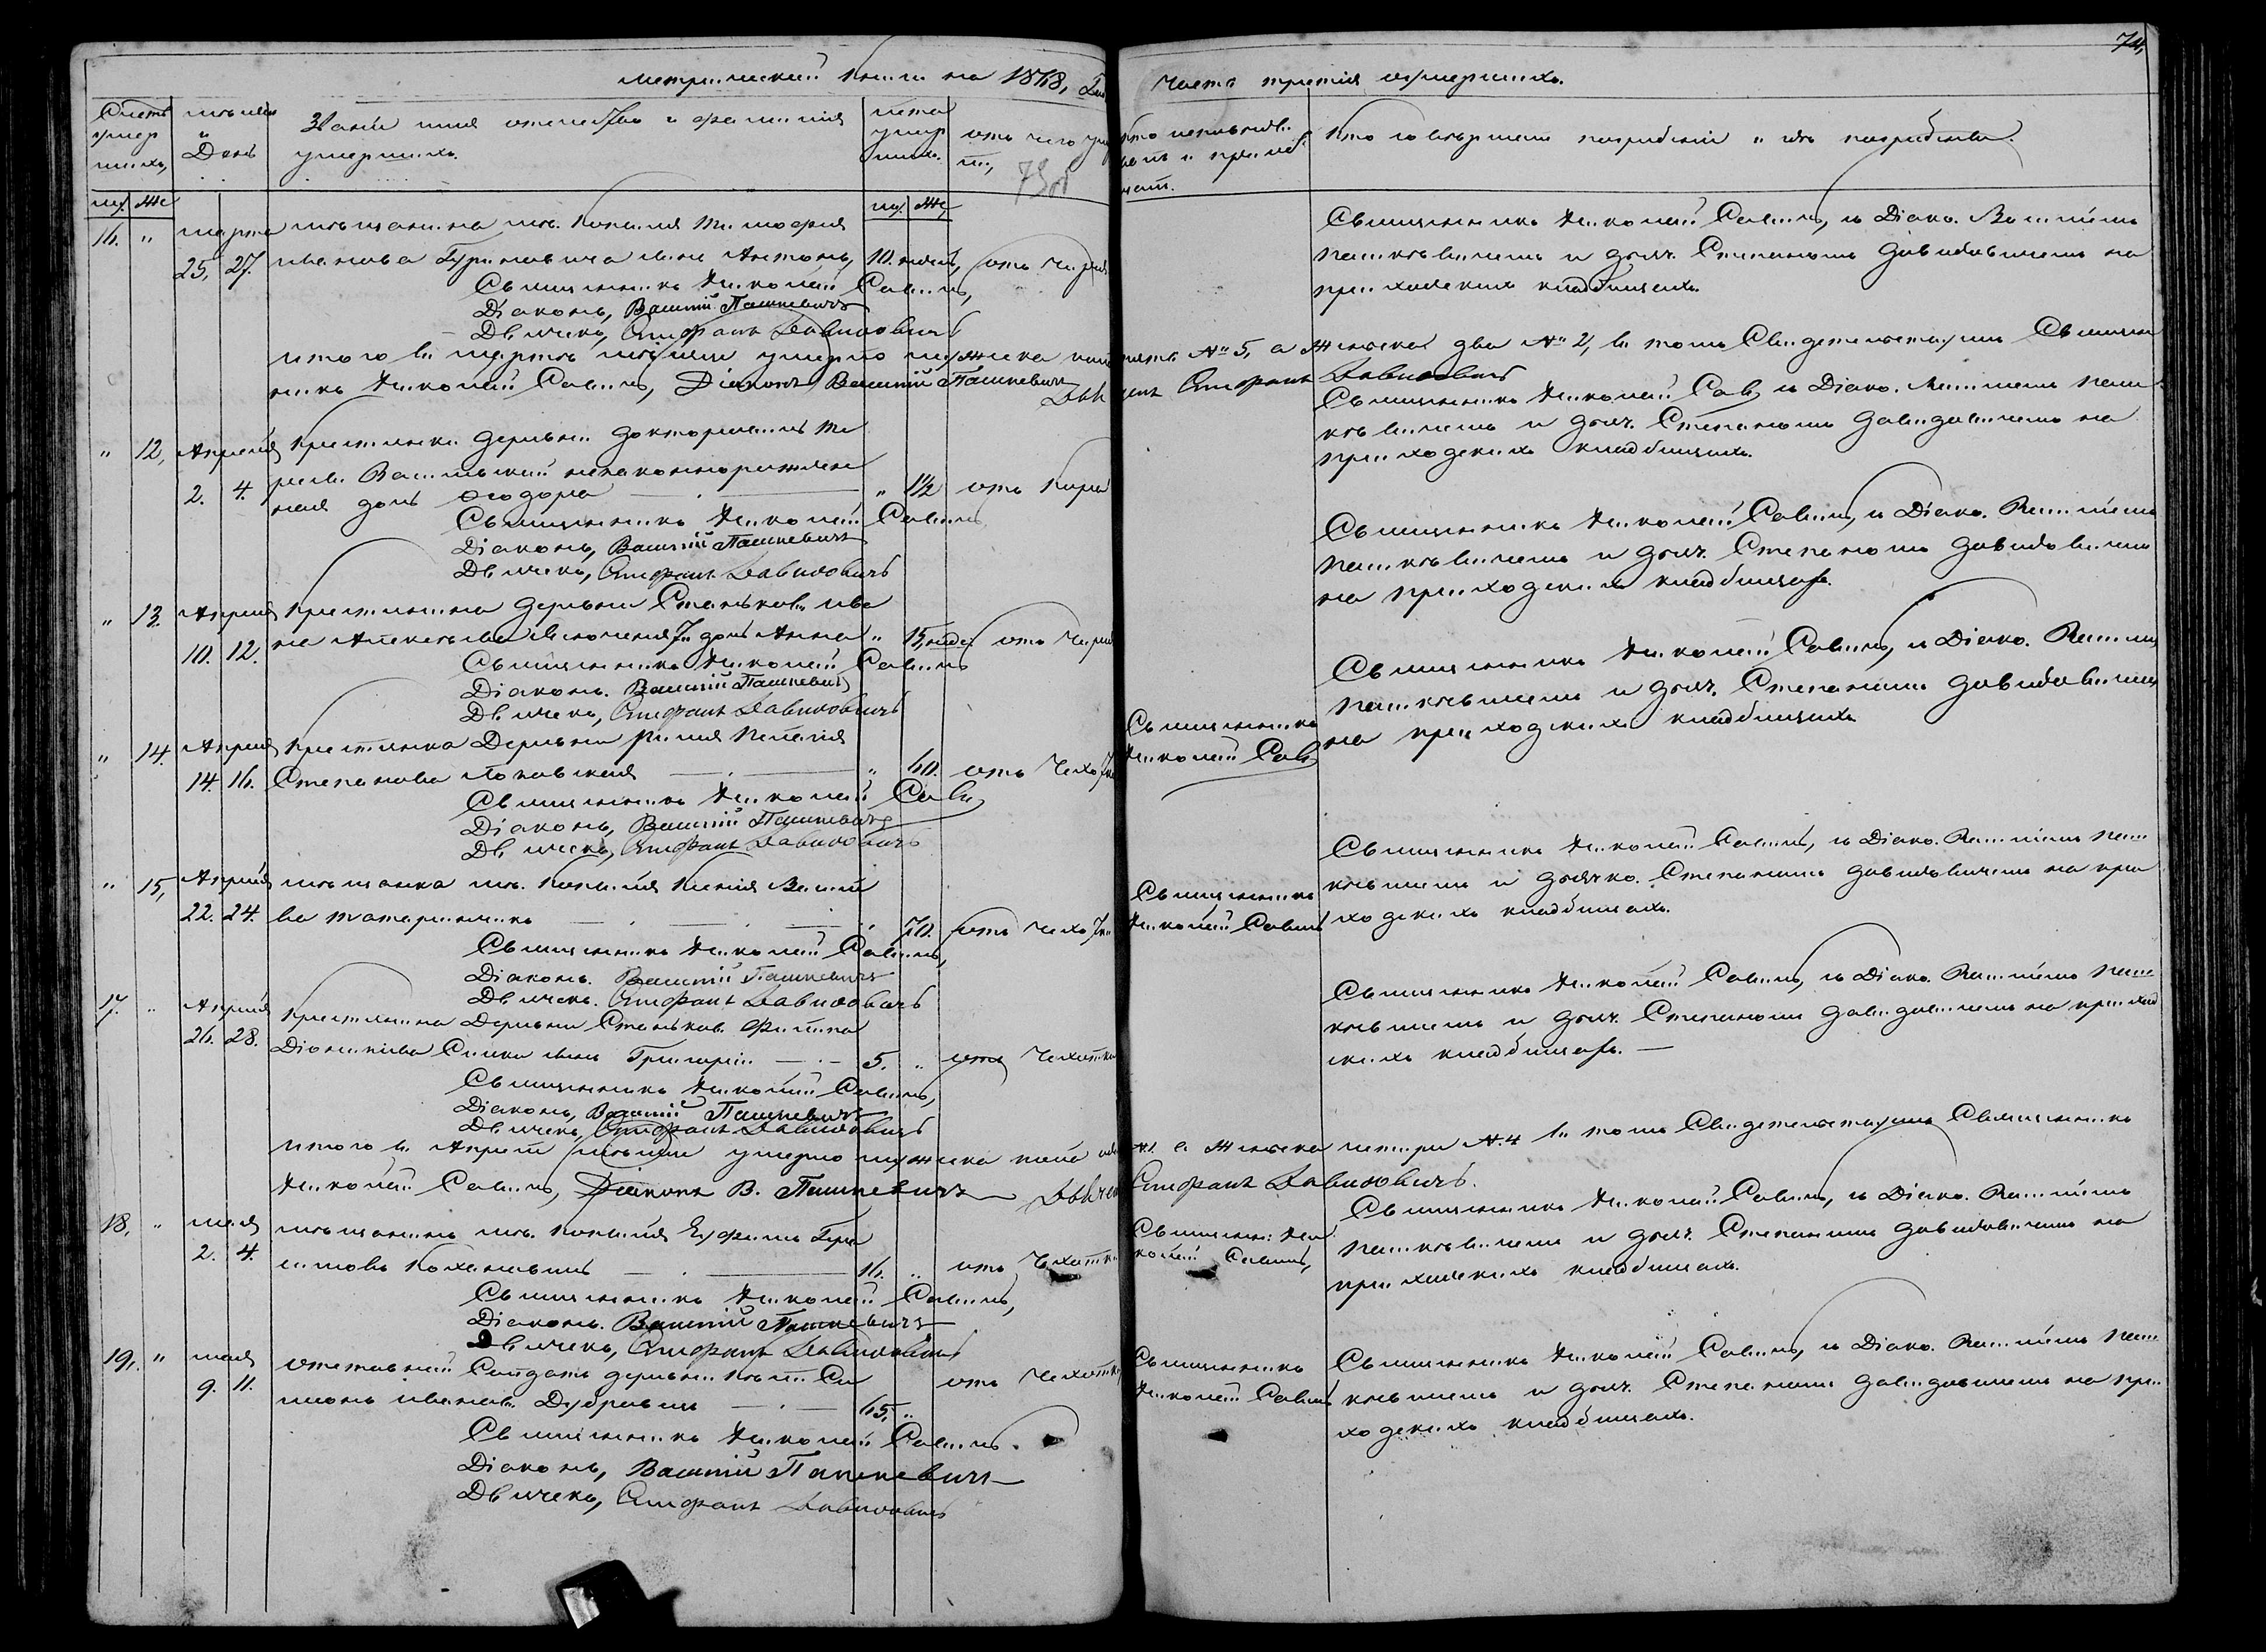 метрической книги на 1868,
часть третія умершихъ.
74,
Счетъ умершихъ,
мѣсяцъ и День
Званіе имя отечество и фамилія умершихъ.
лета умершихъ.
отъ чего умеръ,
Кто исповѣдывалъ и пріобщалъ.
Кто совершилъ погребеніе и гдѣ погребены.
73об
му. Же
му. Же,
16. " марта мѣщанина мѣ. Копыля Тимофея
25, 27. иванова сынъ Антонъ, 10. отъ
Священникъ Николай Савичъ,
Діаконъ, Василій Пашкевичъ
Дьячекъ, Стефанъ Давидовичъ
Священникъ Николай Савичъ, съ Діако. Василіемъ
Пашкѣвичемъ и дьяч. Степаномъ Давидовичемъ на
приходскихъ кладбищахъ.
итого въ мартѣ мѣсяце умерло мужеска пола пять № 5, а Женска два № 2, въ томъ Свидетельствуемъ Священ
никъ Николай Савичъ, Діаконъ Василій Пашкевичъ Дьячекъ Стефанъ Давидовичъ
" 12, Апреля Крестьянки деревни
2. 4. незаконнорожден
ная дочь Ѳеодора " 1½ отъ
Священникъ Николай Савичъ
Діаконъ, Василій Пашкевичъ
Дьячекъ, Стефанъ Давидовичъ
Священникъ Николай Савичъ съ Діако. Василіемъ Паш
кѣвичемъ и дьяч. Степаномъ Давидовичемъ на
приходскихъ кладбищахъ.
" 13. Апреля Крестьянина деревни Станьковъ ива
10. 12. на Алексѣева дочь Анна " 15, неде. отъ
Священникъ Николай Савичъ
Діаконъ. Василій Пашкевичъ
Дьячекъ, Стефанъ Давидовичъ
Священникъ Николай Савичъ, съ Діако. Василіемъ
Пашкѣвичемъ и дьяч. Степаномъ Давидовичемъ
на приходскихъ кладбищахъ.
" 14. Апреля Крестьянка Деревни Пелагія
14. 16. Степанова " 60. отъ Чахотки
Священникъ Николай Савич
Діаконъ, Василій Пашкевичъ
Дьячекъ, Стефанъ Давидовичъ
Священникъ
Николай Савич
Священникъ Николай Савичъ, съ Діако. Василіемъ
Пашкѣвичемъ и дьяч. Степаномъ Давидовичемъ
на приходскихъ кладбищахъ
" 15, Апреля мѣщанка мѣ. Копыля
22. 24. " 70. отъ Чахотки
Священникъ Николай Савичъ,
Діаконъ. Василій Пашкевичъ
Дьячекъ. Стефанъ Давидовичъ
Священникъ
Николай Савичъ
Священникъ Николай Савичъ, съ Діако. Василіемъ Паш
кѣвичемъ и дьячко. Степаномъ Давидовичемъ на при
ходскихъ кладбищахъ.
17. " Апреля Крестьянина Деревни Станьков. Филипа
26. 28. Діонисіева сынъ Григорій 5. " отъ Чахотки
Священникъ Николай Савичъ,
Діаконъ, Василій Пашкевичъ
Дьячекъ, Стефанъ Давидовичъ
Священникъ Николай Савичъ, съ Діако. Василіемъ Паш
кѣвичемъ и дьяч. Степаномъ Давидовичемъ на приход
скихъ кладбищахъ. —
итого въ Апреле мѣсяце умерло мужеска пола №1. а Женска четыри №. 4 въ томъ Свидетельствуемъ Священникъ
Николай Савичъ, Діаконъ В. Пашкевичъ Дьячекъ Стефанъ Давидовичъ.
18, " мая мѣщанинъ мѣ. Копыля Ефимъ
2. 4. 16. " отъ Чахотки
Священникъ Николай Савичъ,
Діаконъ. Василій Пашкевичъ
Дьячекъ, Стефанъ Давидовичъ
Священн: Ни
колай Савичъ,
Священникъ Николай Савичъ, съ Діако. Василіемъ
Пашкѣвичемъ и дьяч. Степаномъ Давидовичемъ на
приходскихъ кладбищахъ.
19, " мая отставной Солдатъ деревни Си
9. 11. меонъ иванов. 65, " отъ Чахотки
Священникъ Николай Савичъ.
Діаконъ, Василій Пашкевичъ
Дьячекъ, Стефанъ Давидовичъ
Священникъ
Николай Савичъ
Священникъ Николай Савичъ, съ Діако. Василіемъ Паш
кѣвичемъ и дьяч. Степаномъ Давидовичемъ на при
ходскихъ кладбищахъ.